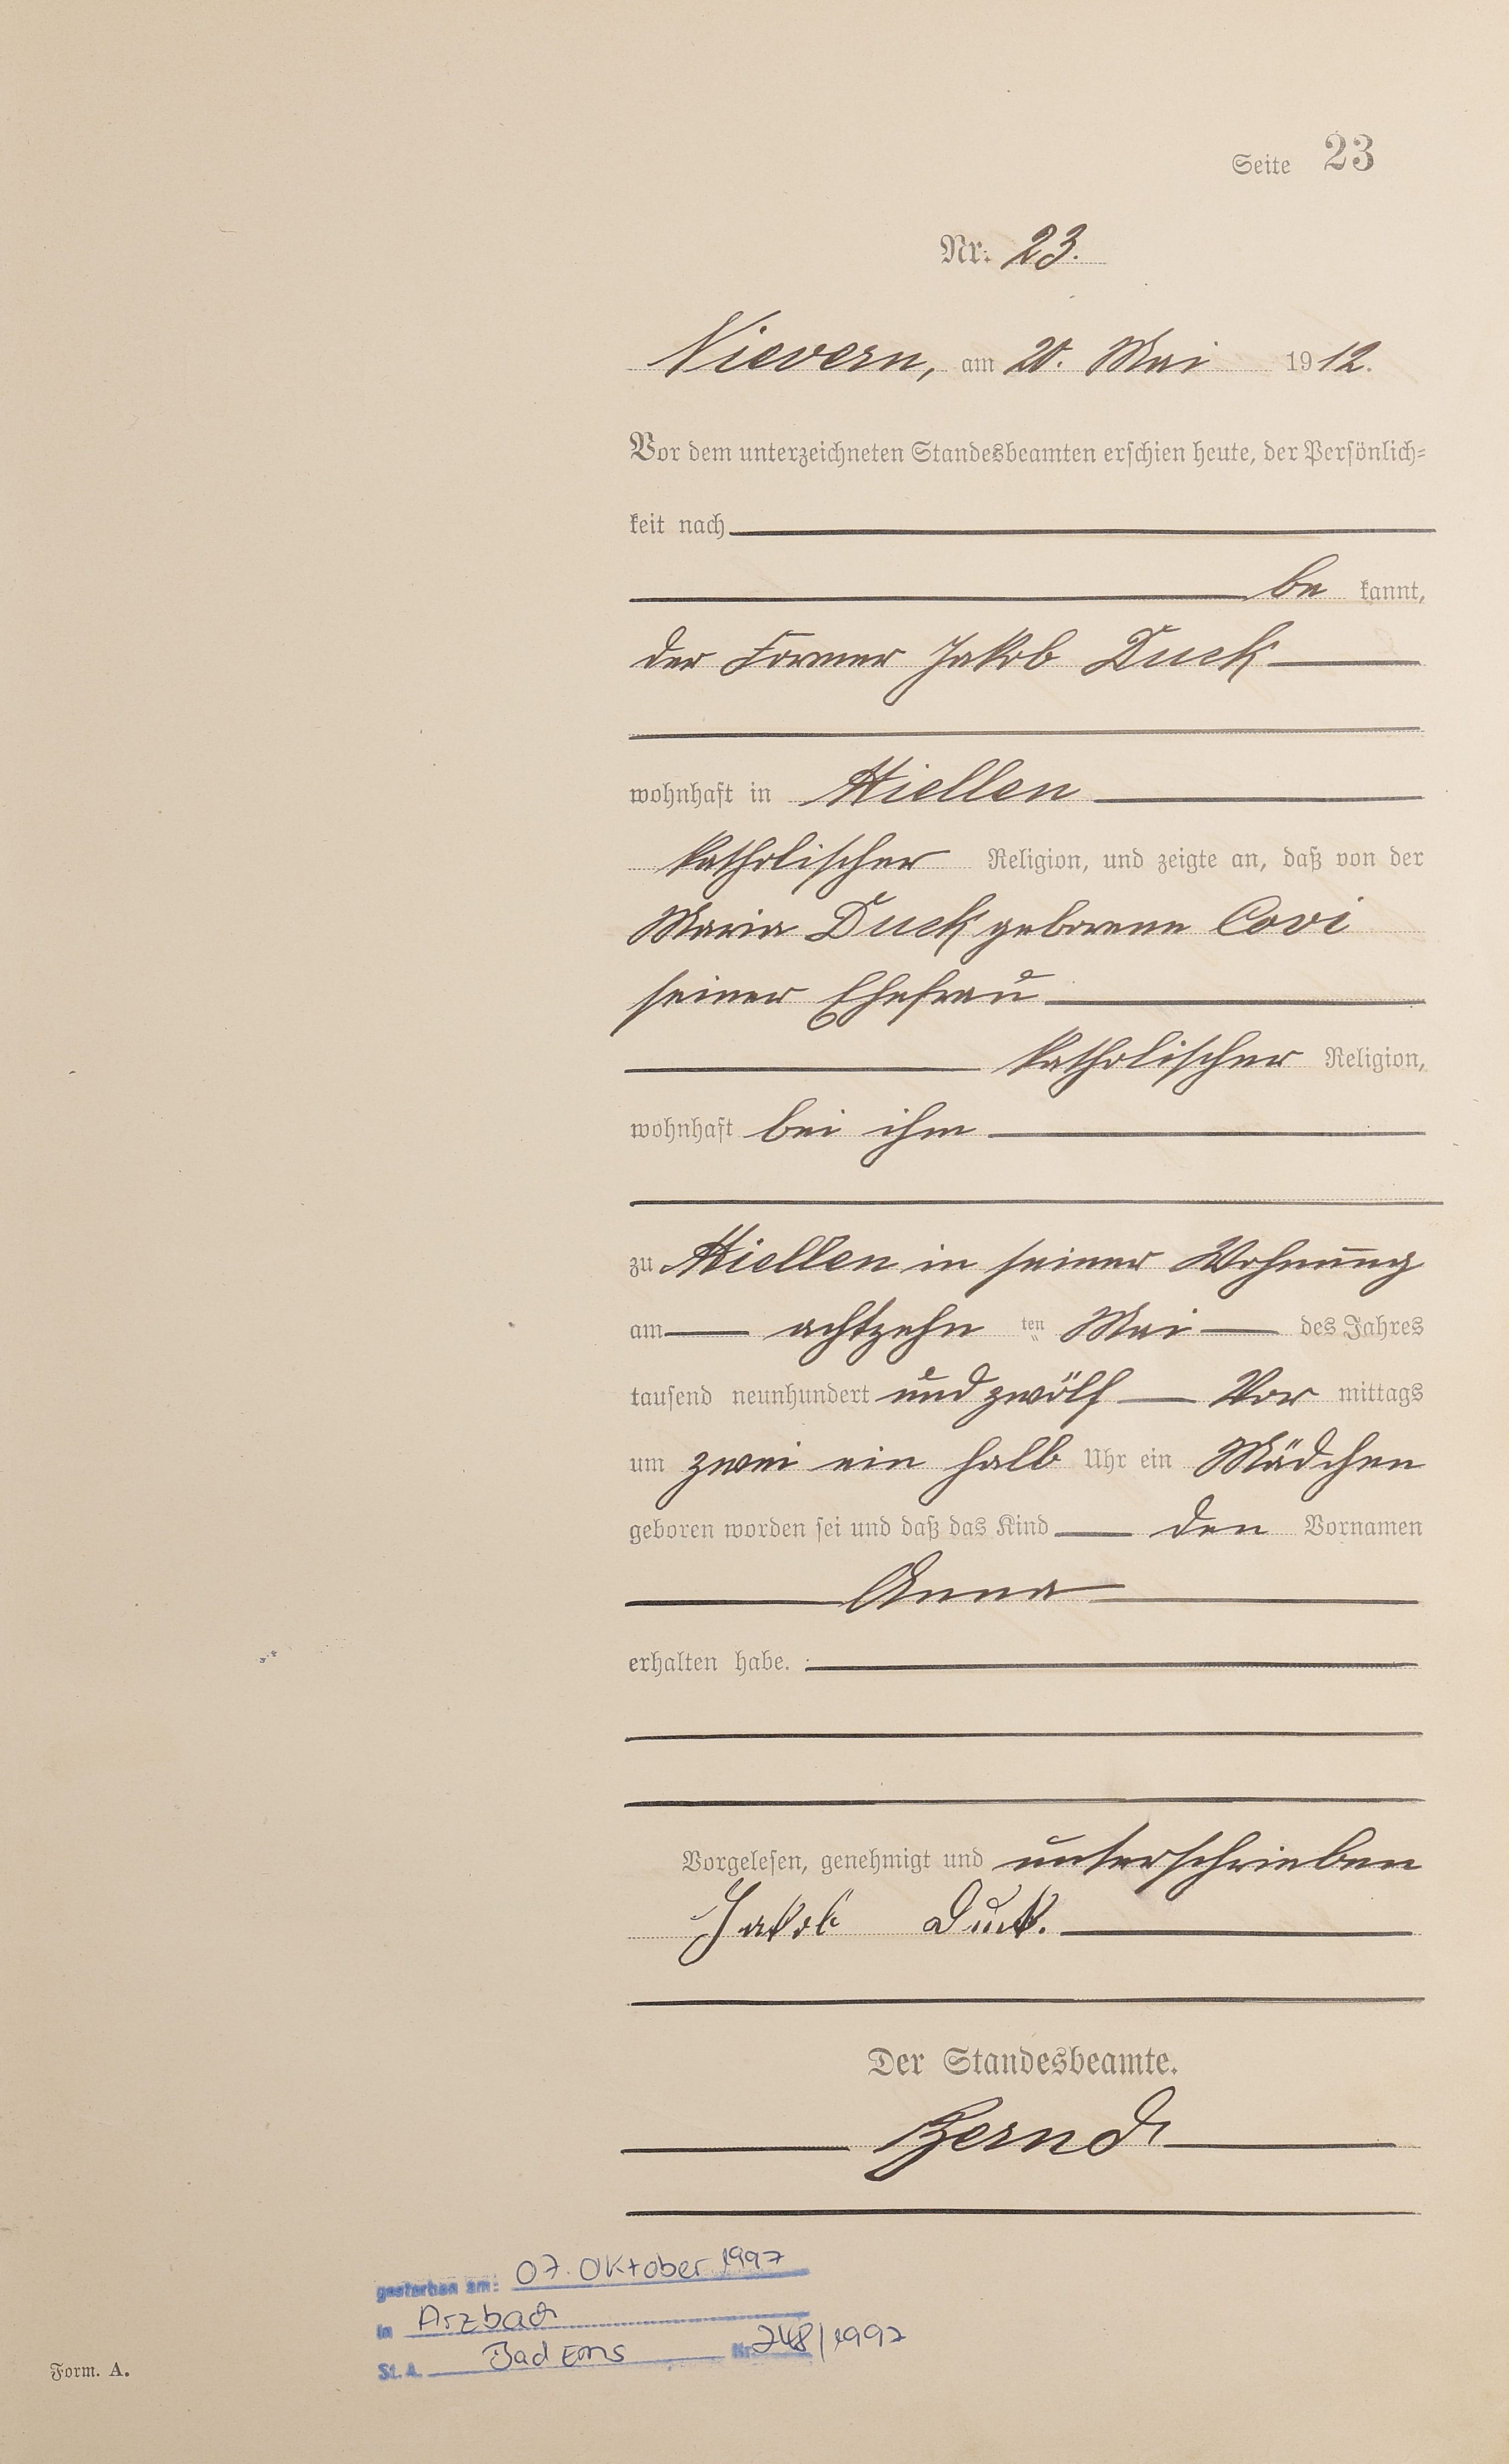 Seite 23
Nr. 23.
Nievern, am 20. Mai 1912.
Vor dem unterzeichneten Standesbeamten erschien heute, der Persönlich-
keit nach
be kannt,
der Former Jakob Duck
wohnhaft in Miellen
katholischer Religion, und zeigte an, daß von der
Maria Duck geborene Covi
seiner Ehefrau
katholischer Religion,
wohnhaft bei ihm
zu Miellen in seiner Wohnung
am achtzehn ten Mai des Jahres
tausend neunhundert und zwölf Vor mittags
um zwei ein halb Uhr ein Mädchen
geboren worden sei und daß das Kind den Vornamen
Anna
erhalten habe.
Vorgelesen, genehmigt und unterschrieben
Jakob Duck.
Der Standesbeamte.
gestorben am: 07. Oktober 1997
in Arzbach
St. A. Bad Ems Nr. 248/1997
Form. A.